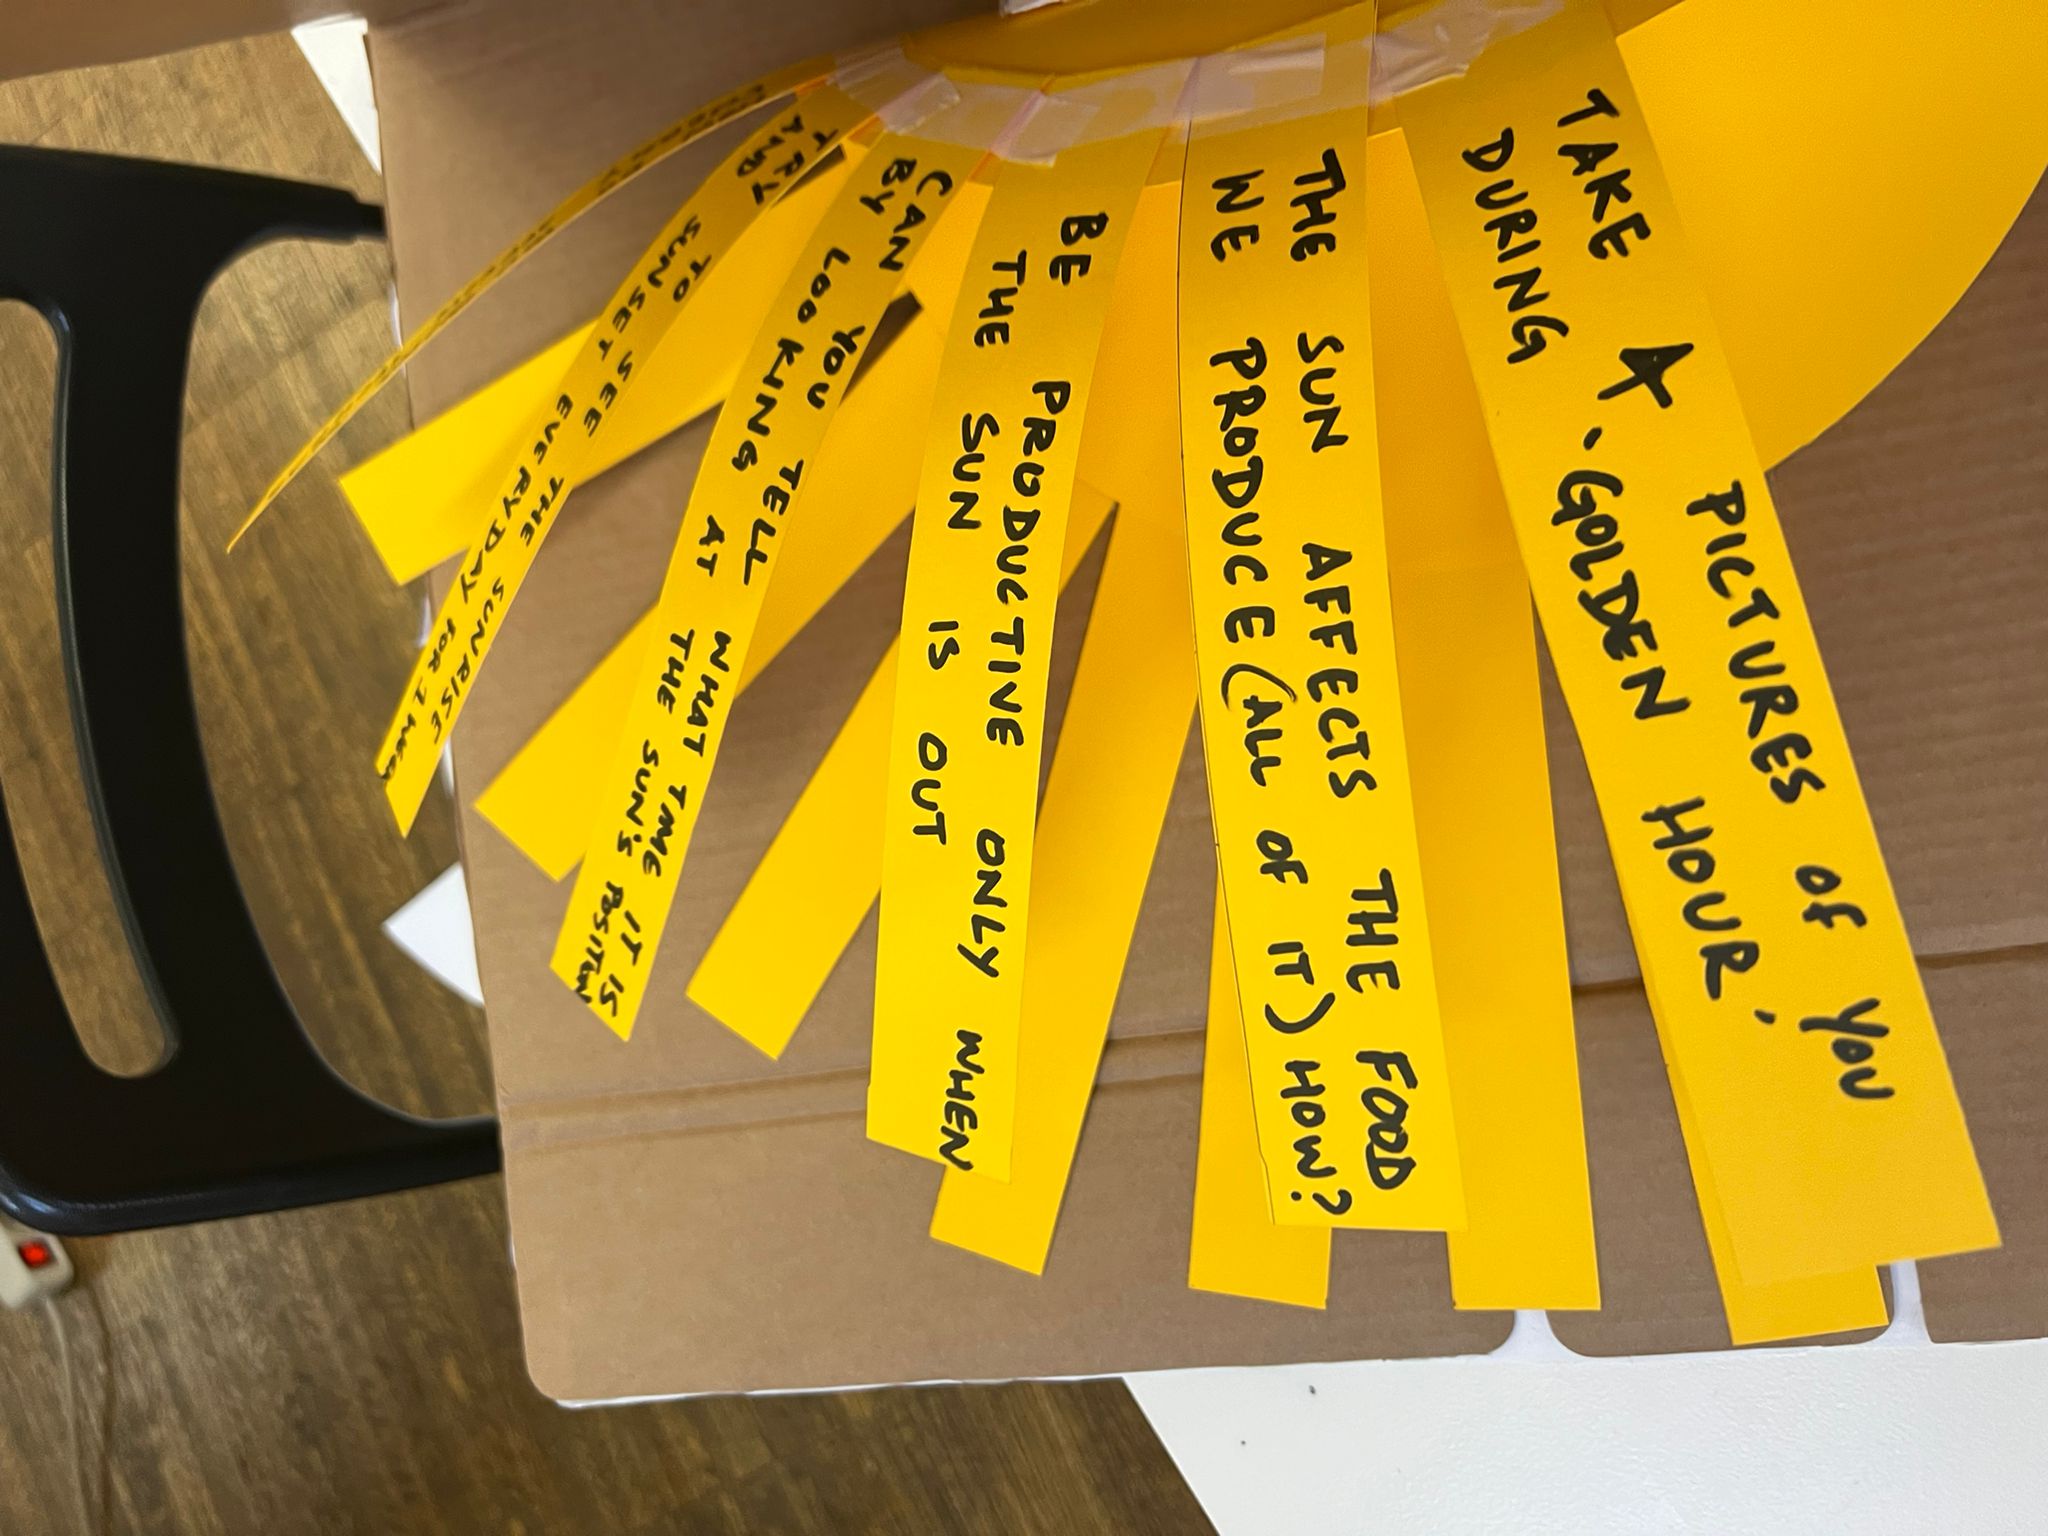 TAKE A PICTURES OF YOU
DURING 'GOLDEN HOUR'
THE SUN AFFECTS THE FOOD
WE PRODUCE (ALL OF IT) HOW?
BE PRODUCTIVE ONLY WHEN
THE SUN IS OUT
CAN YOU TELL WHAT TIME IT IS
BY LOOKING AT THE SUN'S POSITION
TRY TO SEE THE SUNRISE
AND SUNSET EVERYDAY FOR 1 WEEK